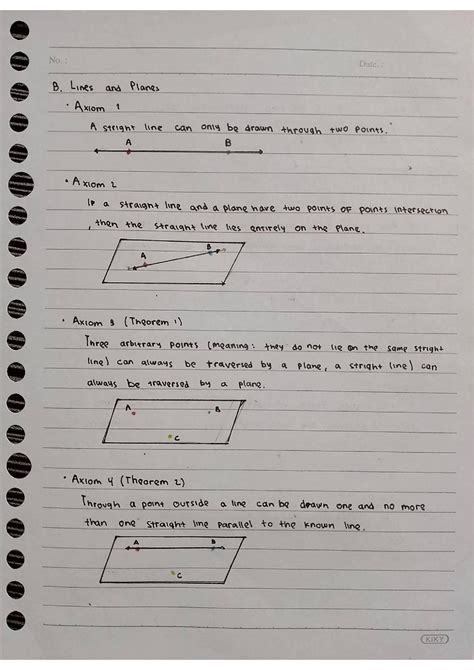 No. :
Date. :
B. Lines and Planes
• Axiom 1
A stright line can only be drawn through two points.
A B
• Axiom 2
IF a straight line and a plane have two points of points intersection
, then the straight line lies entirely on the plane.
A B
• Axiom 3 (Theorem 1)
Three arbitrary points (meaning: they do not lie on the same stright
line) can always be traversed by a plane, a stright line) can
always be traversed by a plane.
A B
C
• Axiom 4 (Theorem 2)
Through a point outside a line can be drawn one and no more
than one straight line parallel to the known line.
A B
C
KIKY